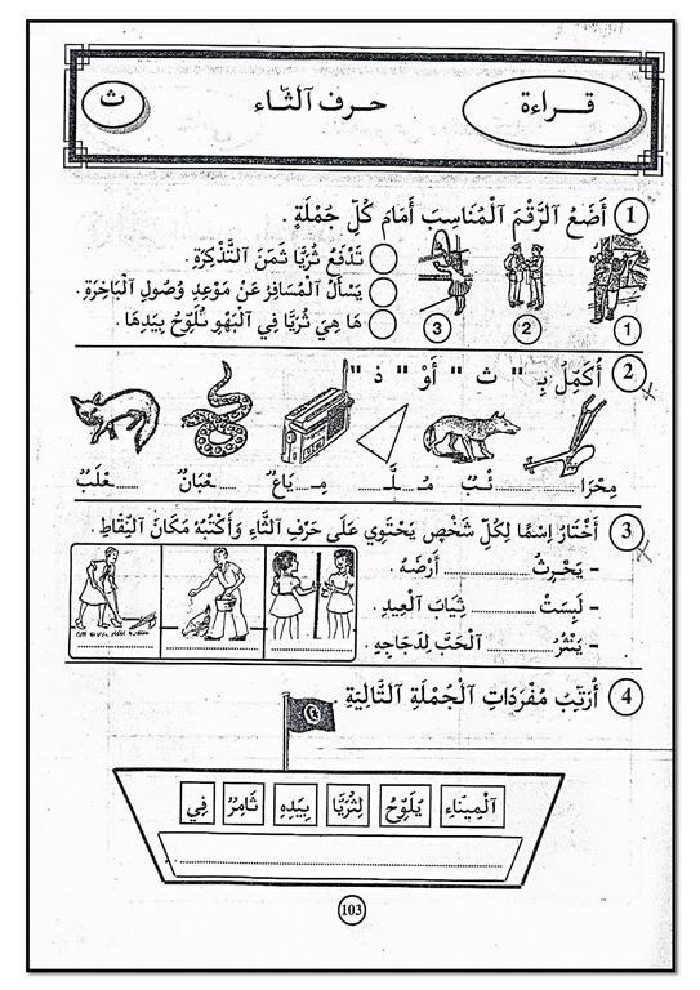 قــراءة
حرف ٱلثّاء
ث
1 أَضَعُ ٱلرَّقْمَ ٱلْمُنَاسِبَ أَمَامَ كُلِّ جُمْلَةٍ .
تَدْفَعُ ثُرَيَّا ثَمَنَ ٱلتَّذْكِرَةِ .
يَسْأَلُ ٱلْمُسَافِرُ عَنْ مَوْعِدِ وُصُولِ ٱلْبَاخِرَةِ .
هَا هِيَ ثُرَيَّا فِي ٱلْبَهْوِ تُلَوِّحُ بِيَدِهَا .
1 2 3
2 أُكَمِّلُ بِـ " ث " أَوْ " ذ "
مِحْرَا........ ........ئْبٌ مُـ....لَّـ.... مِـ....يَاعٌ ....عْبَانٌ ....عْلَبٌ
3 أَخْتَارُ اِسْمًا لِكُلِّ شَخْصٍ يَحْتَوِي عَلَى حَرْفِ ٱلثَّاءِ وَأَكْتُبُهُ مَكَانَ ٱلنِّقَاطِ .
- يَحْرِثُ ............ أَرْضَهُ .
- لَبِسَتْ ............ ثِيَابَ ٱلْعِيدِ .
- يَنْثُرُ ............ ٱلْحَبَّ لِدَجَاجِهِ .
4 أُرَتِّبُ مُفْرَدَاتِ ٱلْجُمْلَةِ ٱلتَّالِيَةِ
ٱلْمِينَاءِ يُلَوِّحُ لِثُرَيَّا بِيَدِهِ ثَامِرٌ فِي
103